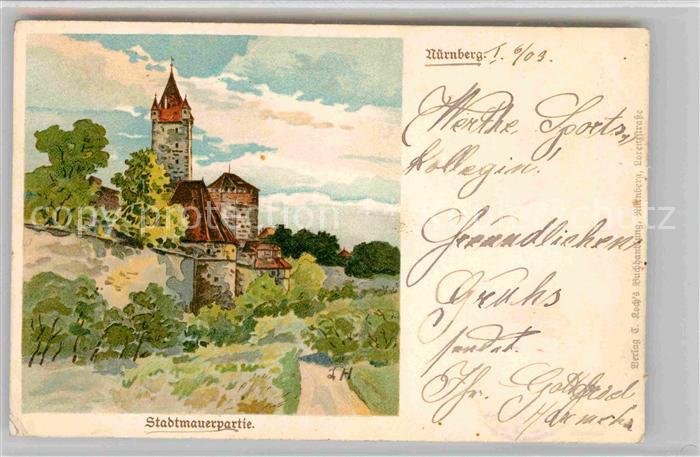 Nürnberg. I. 6/03
Werthe Sports-
kollegin!
Freundlichen
Gruhs
sendet.
Ihr. Gottfried
Stadtmauerpartie.
Verlag C. Koch's Buchhandlung, Nürnberg, Lorenzstraße
copyright prospetphoto.com
JH